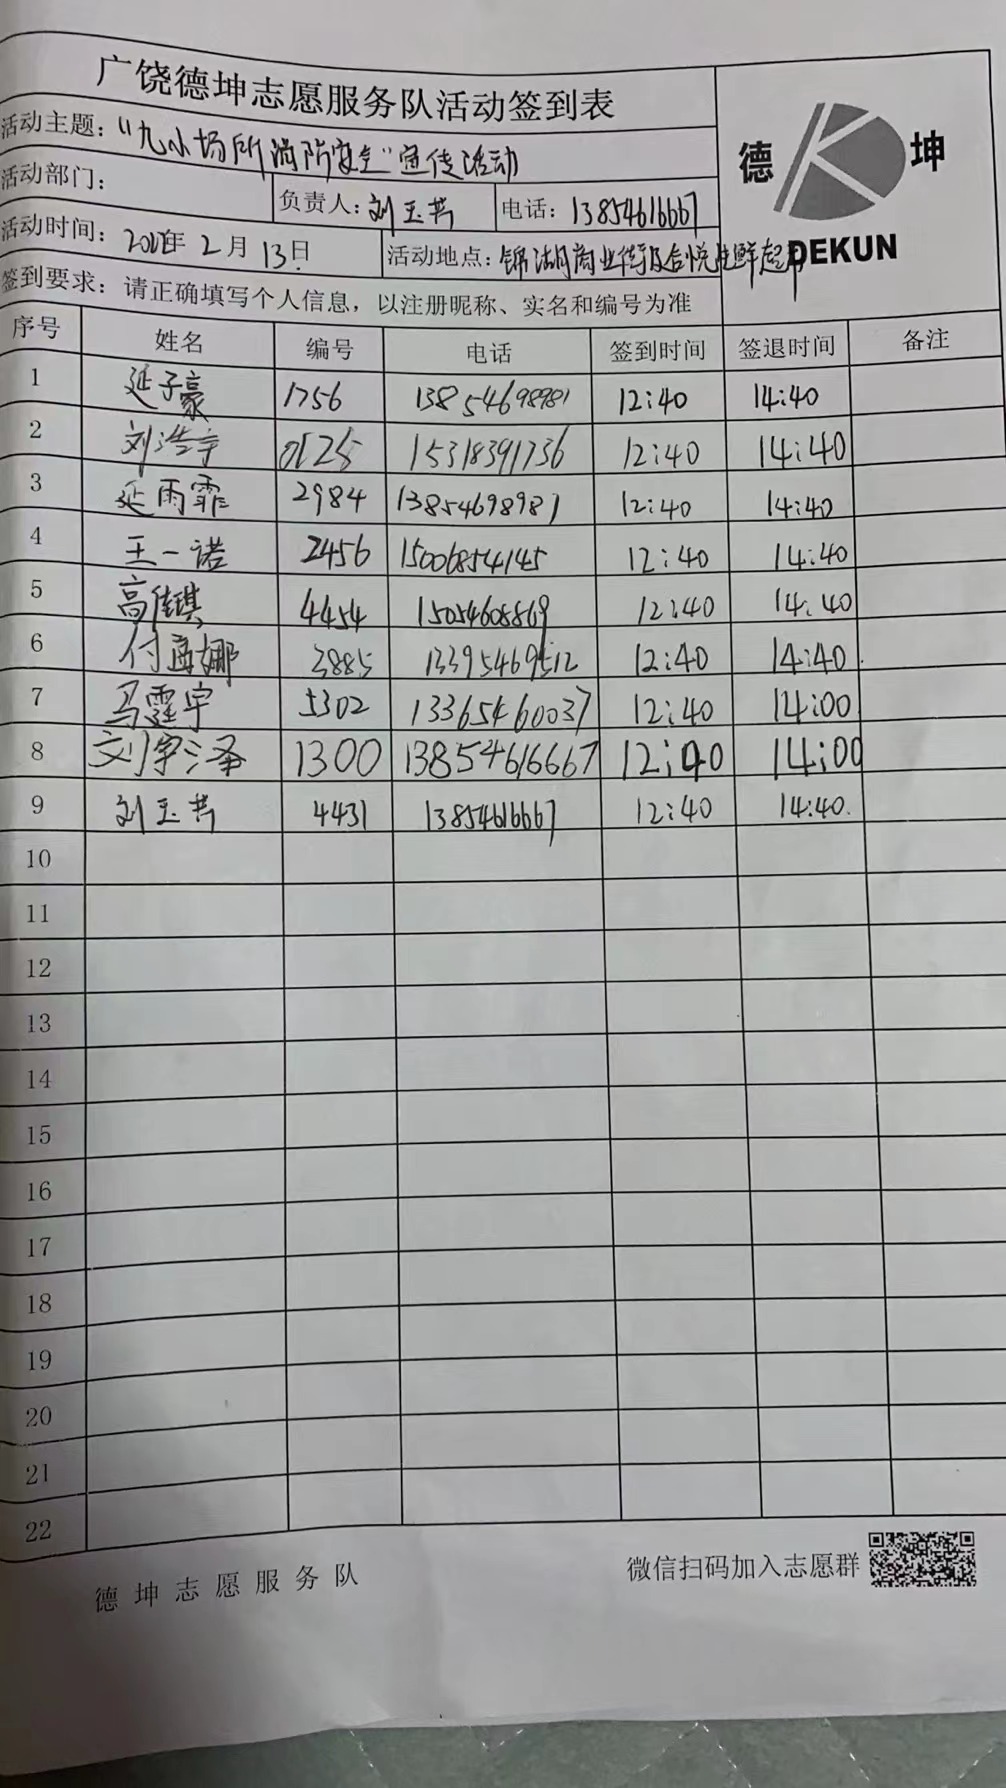 广饶德坤志愿服务队活动签到表
德 坤
DEKUN
活动主题：“九小场所消防安全”宣传活动
活动部门： 负责人：刘玉芹 电话：13854616667
活动时间： 年 2 月 13 日 活动地点：锦湖商业街及合悦生鲜超市
签到要求：请正确填写个人信息，以注册昵称、实名和编号为准
序号 姓名 编号 电话 签到时间 签退时间 备注
1 延子豪 1756 13854698981 12:40 14:40
2 刘浩宇 15318391736 12:40 14:40
3 延雨霏 2984 13854698981 12:40 14:40
4 王一诺 2456 15006854145 12:40 14:40
5 高佳琪 4454 15054608869 12:40 14:40
6 付 娜 3885 13395469512 12:40 14:40
7 马霆宇 5302 13365460037 12:40 14:00
8 刘宇泽 1300 13854616667 12:40 14:00
9 刘玉芹 4431 13854616667 12:40 14:40.
10
11
12
13
14
15
16
17
18
19
20
21
22
德坤志愿服务队 微信扫码加入志愿群